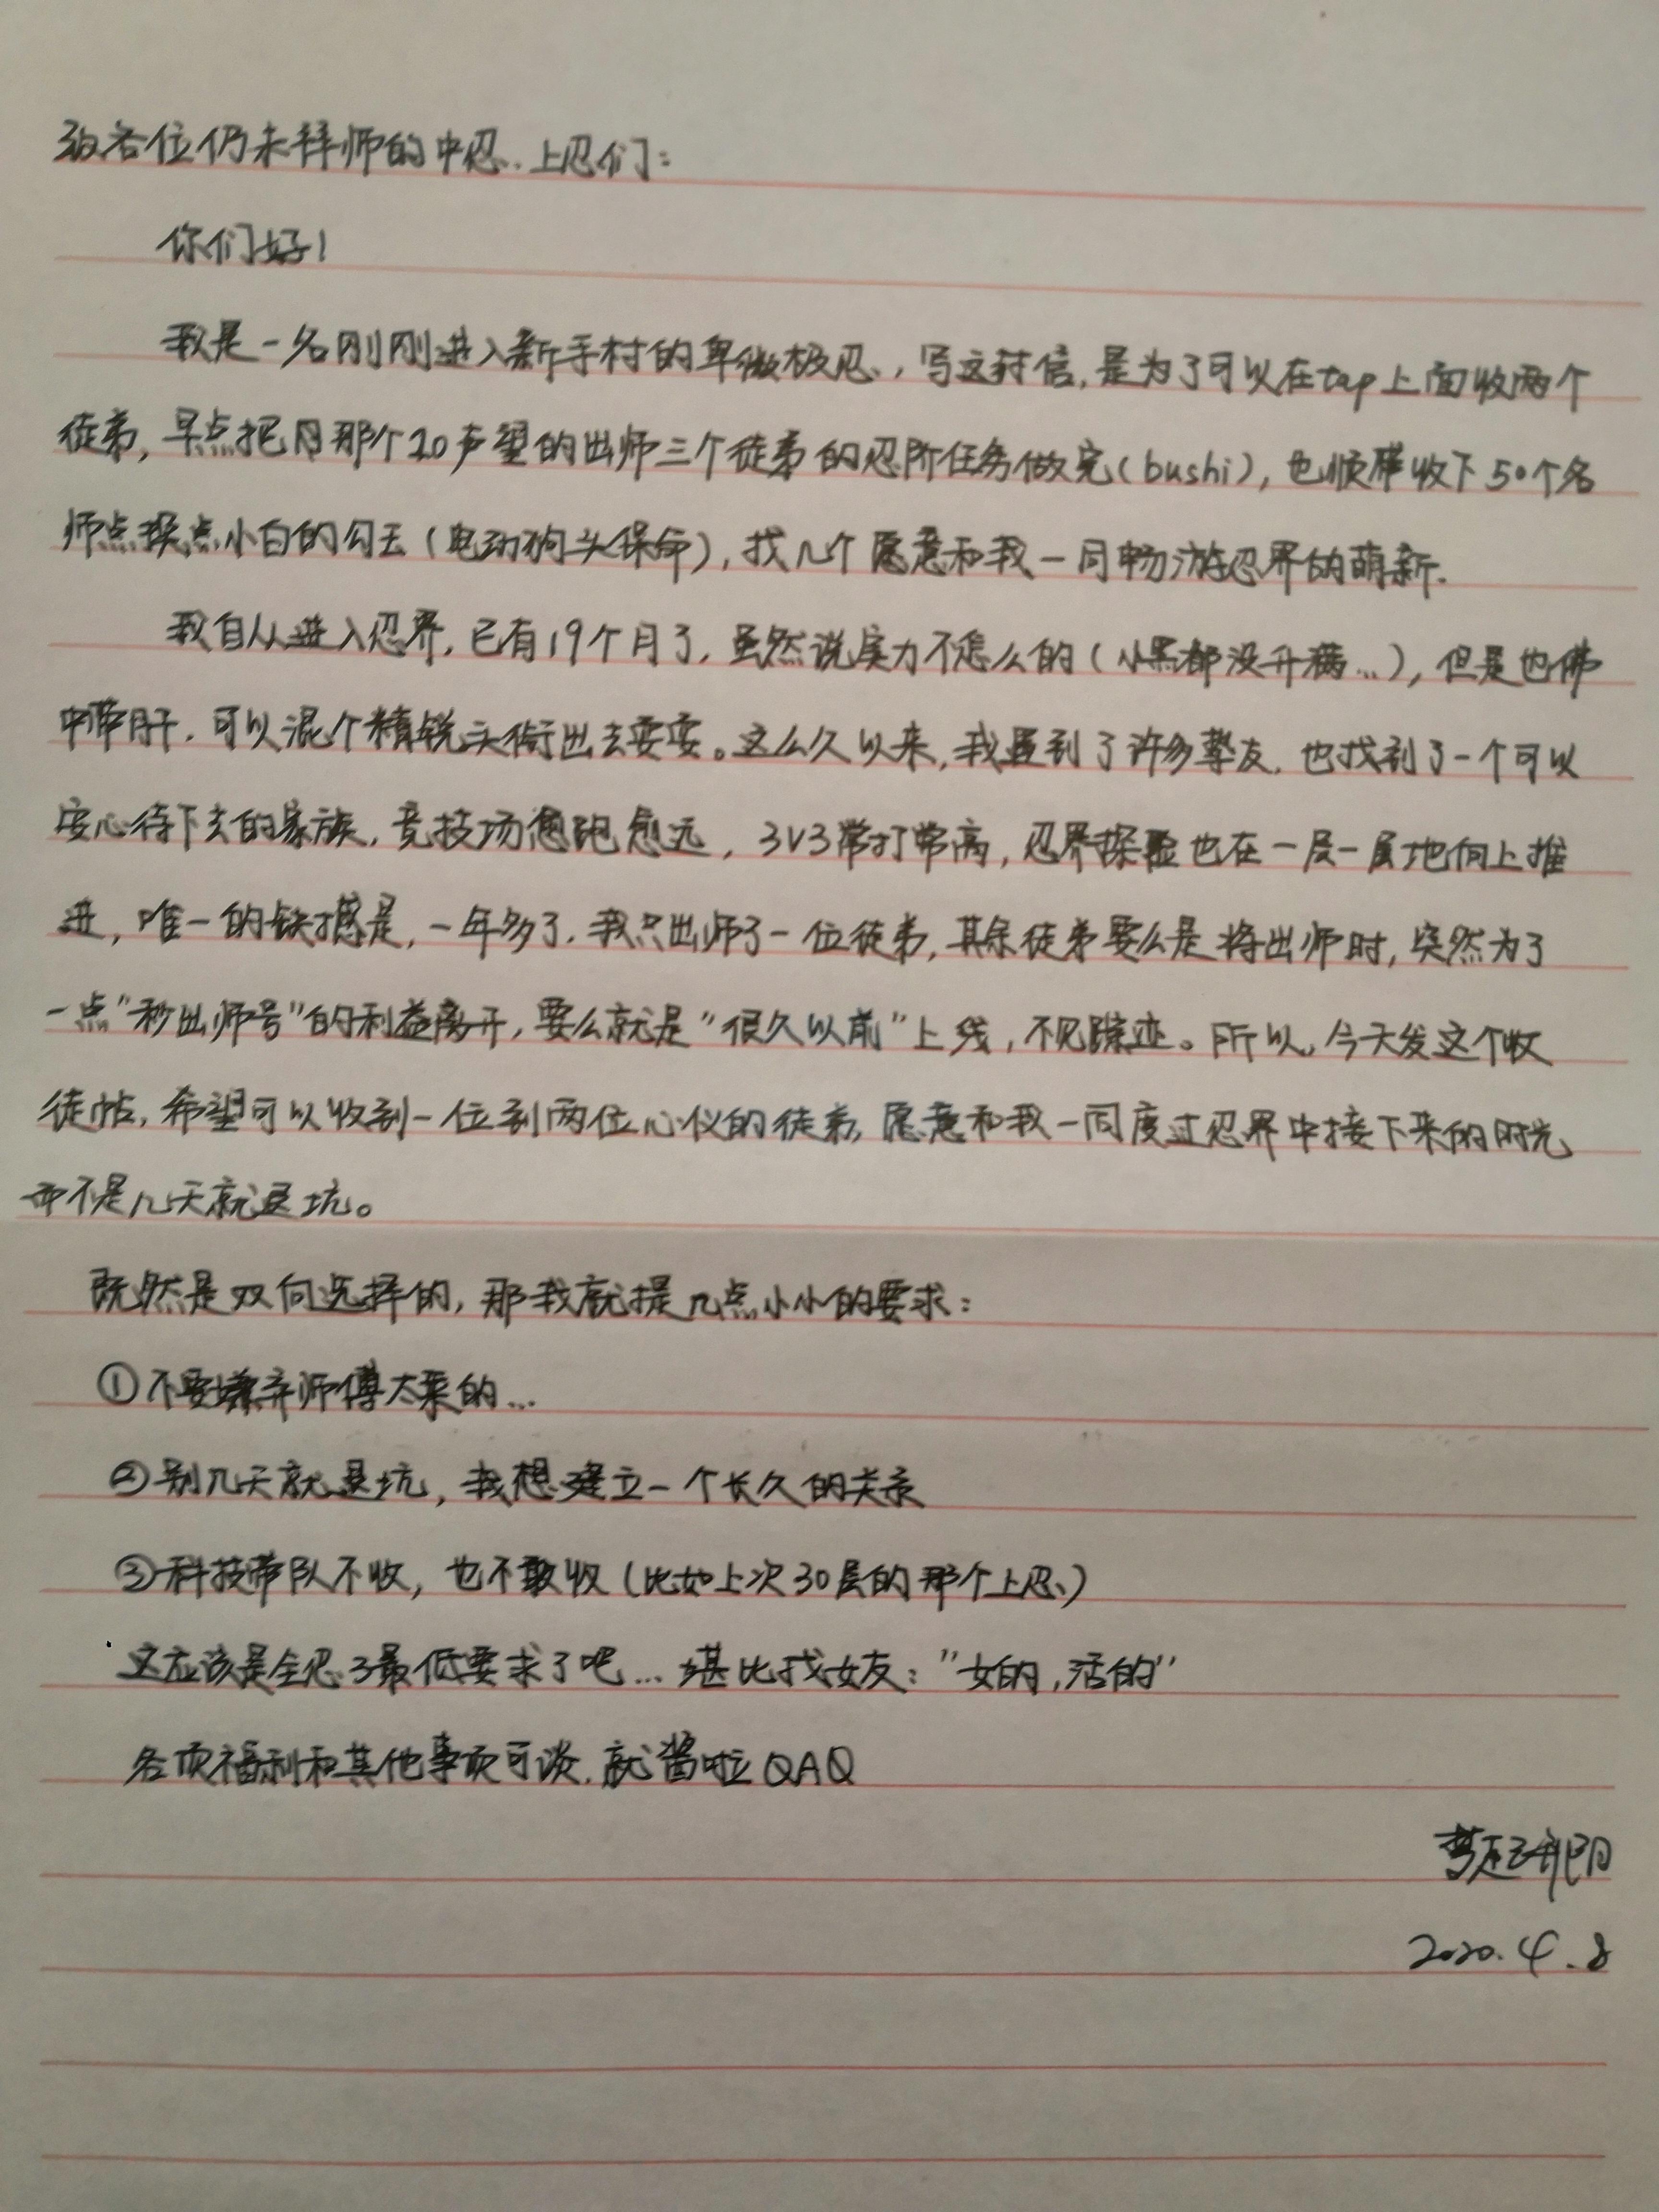 致各位仍未拜师的中忍、上忍们:
你们好!
我是一名刚刚进入新手村的卑微极忍,写这封信,是为了可以在tap上面收两个
徒弟,早点把那个20声望的出师三个徒弟的忍阶任务做完(bushi),也顺带收下50个名
师点拨点小白的勾玉(电动狗头保命),找几个愿意和我一同畅游忍界的萌新.
我自从进入忍界,已有19个月了,虽然说实力不怎么的(小黑都没升满…),但是也佛
中带肝,可以混个精锐头衔出去耍耍。这么久以来,我遇到了许多挚友,也找到了一个可以
安心待下去的家族,竞技场愈跑愈远,3V3常打常高,忍界探险也在一层一层地向上推
进,唯一的缺憾是,一年多了,我只出师了一位徒弟,其余徒弟要么是将出师时,突然为了
一点"秒出师号"的利益离开,要么就是"很久以前"上线,不见踪迹。所以,今天发这个收
徒帖,希望可以收到一位到两位心仪的徒弟,愿意和我一同度过忍界中接下来的时光
而不是几天就退坑。
既然是双向选择的,那我就提几点小小的要求:
①不要嫌弃师傅太菜的…
②别几天就退坑,我想建立一个长久的关系
③科技带队不收,也不敢收(比如上次30层的那个上忍)
这应该是全忍3最低要求了吧…堪比找女友:"女的,活的"
各项福利和其他事项可谈,就酱啦QAQ
2020.4.8